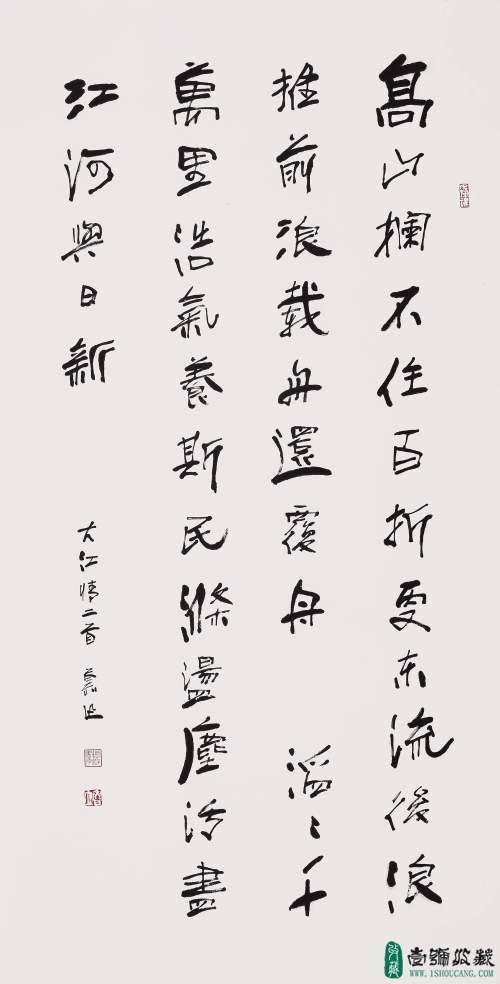 高山攔不住百折要東流後浪
推前浪載舟還覆舟 滔〻千
萬里浩氣養斯民滌盪塵污盡
江河與日新
大江情二首
收藏
壹號收藏
WWW.1SHOUCANG.COM